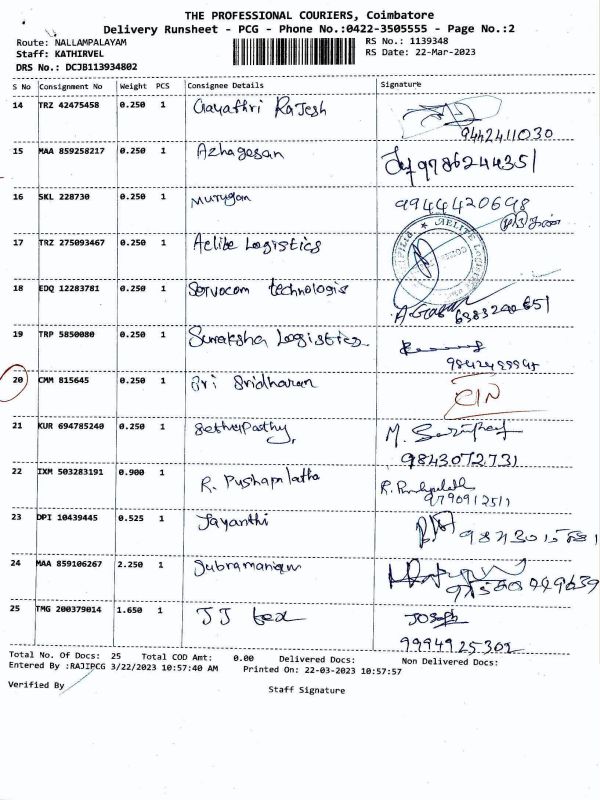 THE PROFESSIONAL COURIERS, Coimbatore
Delivery Runsheet - PCG - Phone No.:0422-3505555 - Page No.:2
Route: NALLAMPALAYAM
Staff: KATHIRVEL
DRS No.: DCJB113934802
RS No.: 1139348
RS Date: 22-Mar-2023
S No Consignment No Weight PCS Consignee Details Signature
14 TRZ 42475458 0.250 1 Gayathri Rajesh
9442411030
15 MAA 859258217 0.250 1 Azhagesan 9786244351
16 SKL 228730 0.250 1 Murugan 9944420698
17 TRZ 275093467 0.250 1 Aelite Logistics
18 EDQ 12283781 0.250 1 Servocom technologis
6383240651
19 TRP 5850080 0.250 1 Suraksha Logistics
20 CMM 815645 0.250 1 Sri Sridharan
21 KUR 694785240 0.250 1 Sethupathy
9843072731
22 IXM 503283191 0.900 1 R. Pushapalatha
9790912511
23 DPI 10439445 0.525 1 Jayanthi
24 MAA 859106267 2.250 1 Subramanian
25 TMG 200379014 1.650 1 JJ tex Joseph
9994925302
Total No. Of Docs: 25 Total COD Amt: 0.00 Delivered Docs: Non Delivered Docs:
Entered By :RAJIPCG 3/22/2023 10:57:40 AM Printed On: 22-03-2023 10:57:57
Verified By
Staff Signature